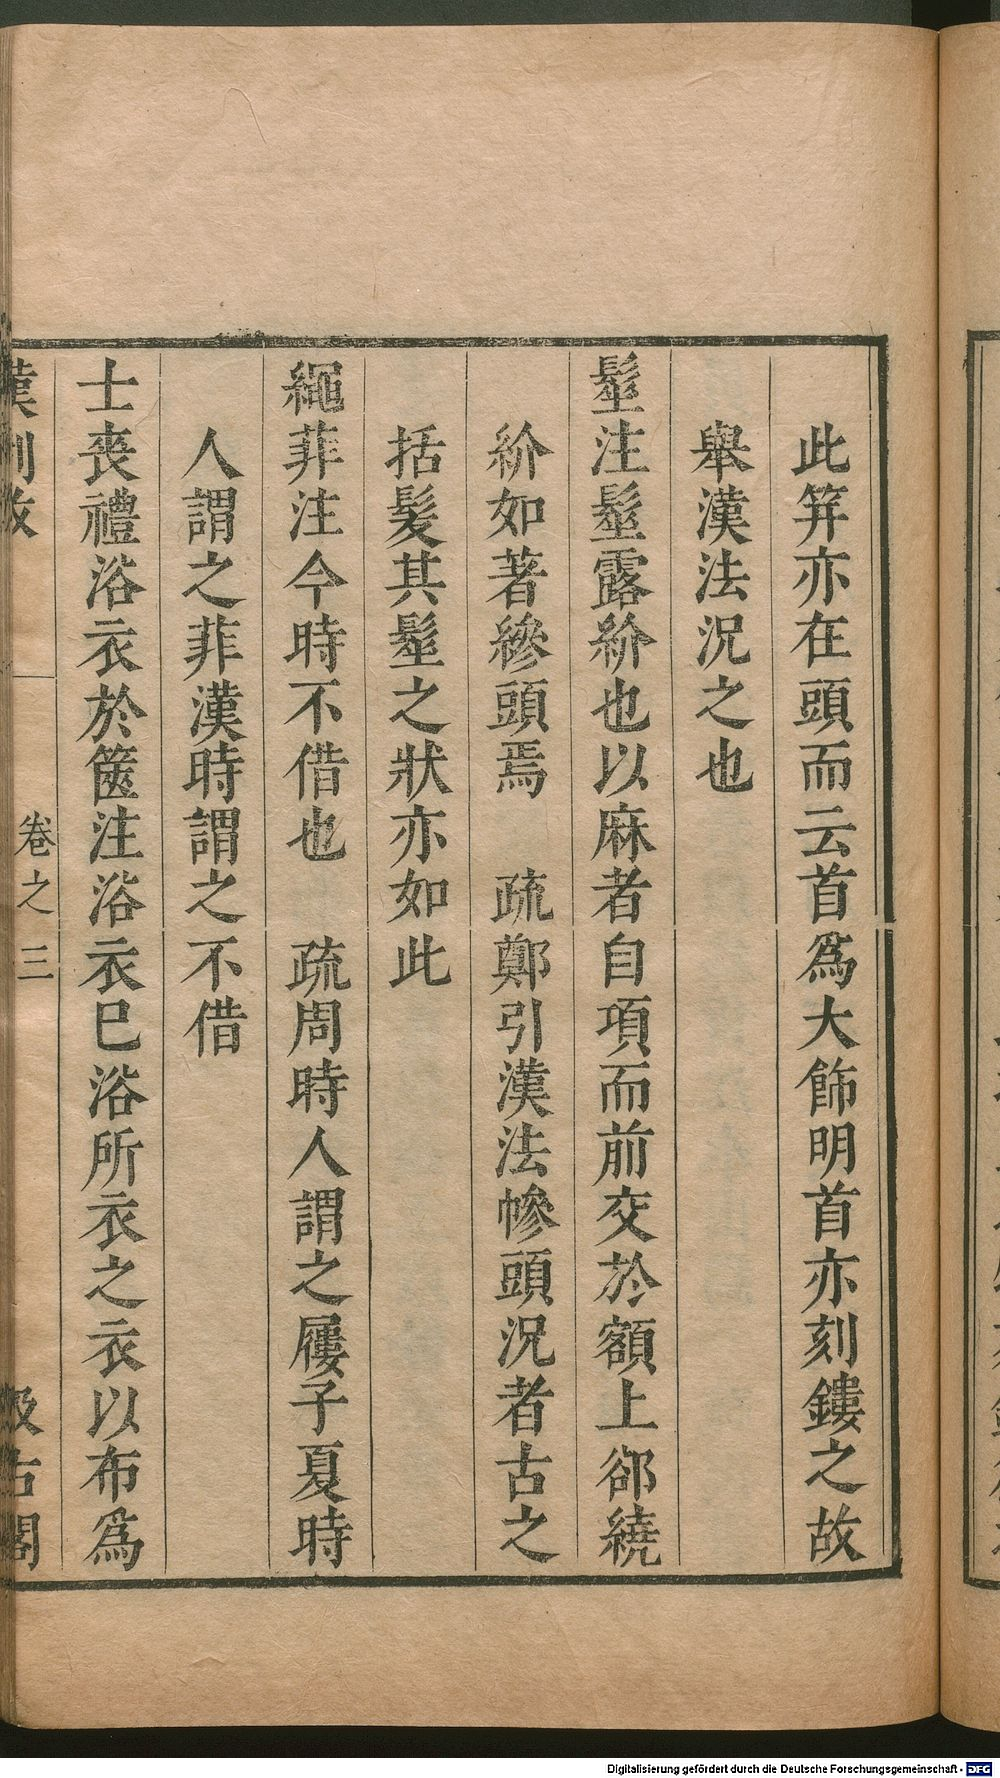 此笄亦在頭而云首爲大飾明首亦刻鏤之故
舉漢法況之也
髽注髽露紒也以麻者自項而前交於額上郤繞
紒如著縿頭焉　疏鄭引漢法幓頭況者古之
括髮其髽之狀亦如此
繩菲注今時不借也　疏周時人謂之屨子夏時
人謂之菲漢時謂之不借
士喪禮浴衣於篋注浴衣巳浴所衣之衣以布爲
漢制攷　卷之三　汲古閣
Digitalisierung gefördert durch die Deutsche Forschungsgemeinschaft - DFG